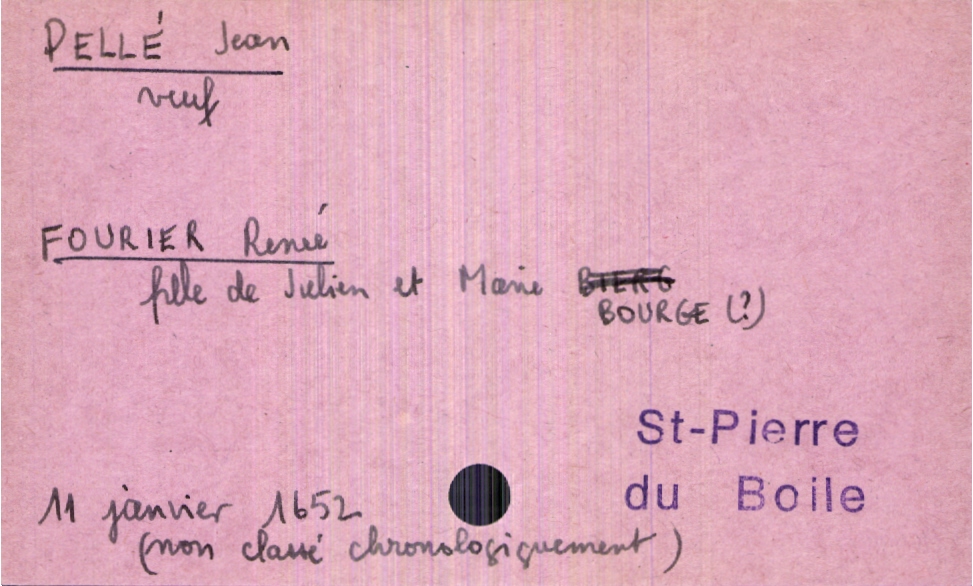 PELLÉ Jean
veuf
FOURIER Renée
fille de Julien et Marie BIERG
BOURGE (?)
St-Pierre
du Boile
11 janvier 1652
(non classé chronologiquement)